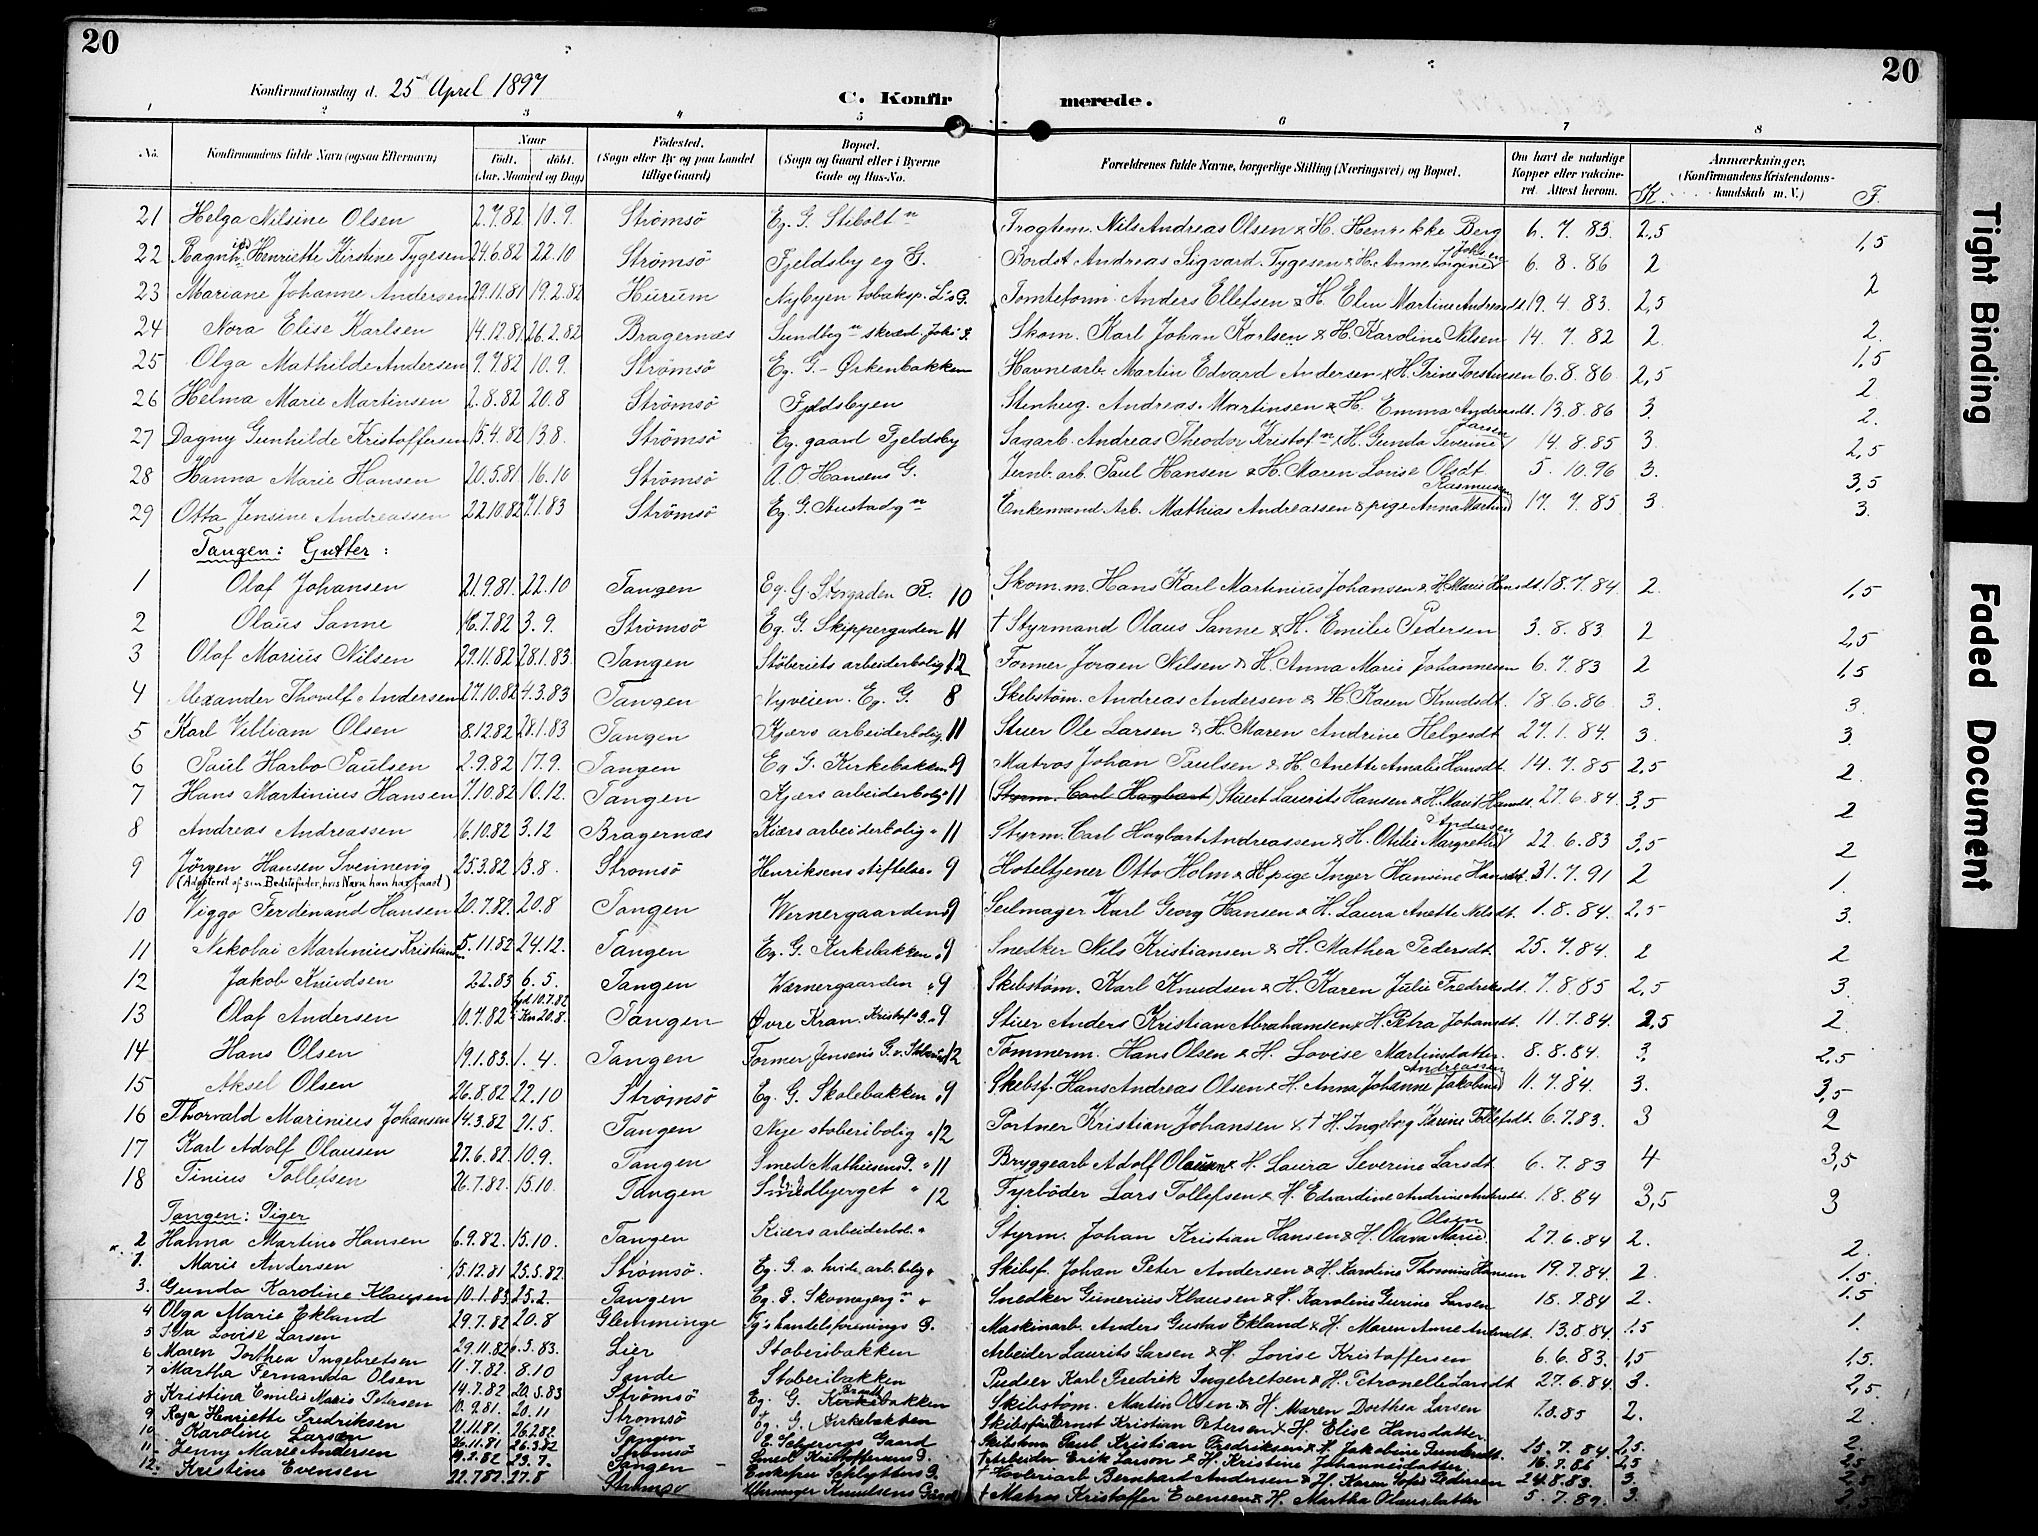 20
20
Konfirmationsdag d. 25 April 1897
C. Konfirmerede.
1 2 3 4 5 6 7 8
No. Konfirmandens fulde Navn (ogsaa Efternavn) Naar født. døbt. (Aar, Maaned og Dag) Fødested. (Sogn eller By og paa Landet tillige Gaard) Bopæl. (Sogn og Gaard eller i Byerne Gade og Hus-No. Forældrenes fulde Navne, borgerlige Stilling (Næringsvei) og Bopæl. Om havt de naturlige Kopper eller vaccineret. Attest herom. K. Anmærkninger. (Konfirmandens Kristendomskundskab m. V.) F.
21 Helga Nilsine Olsen 2.7.82 10.9. Strømsö Eg. G. Stibolt n Fragtem. Nils Andreas Olsen & H. Henrikke Berg 6.7.83. 2,5 1,5
22 Ragnhild Henriette Kirstine Tygesen 24.6.82 22.10 Strømsö Fjeldsby eg G. Bordst Andreas Sigvard Tygesen & H. Anne Jorgine 6.8.86 2 2
23 Mariane Johanne Andersen 29.11.81 19.2.82 Hurum Nybyen tobaksp. L's G. Tomteform. Anders Ellefsen & H. Elen Martine Andreasdt. 19.4.83. 2,5 2.
24 Nora Elise Karlsen 14.12.81 26.2.82 Bragernæs Sundbyn skræd. Skom. Karl Johan Karlsen & H. Karoline Nilsen 14.7.82 2. 1,5
25 Olga Mathilde Andersen 9.7.82 10.9. Strømsö Eg. G. - Ørkenbakken Havnearb. Martin Edvard Andersen & H. Trine Torstensen 6.8.86. 2,5 2.
26 Helma Marie Martinsen 2.8.82 20.8 Strømsö Fjeldsbyen Stenhug. Andreas Martinsen & H. Emma Andreasdt. 13.8.86 3. 2.
27 Dagny Gunhilde Kristoffersen 15.4.82 13.8. Strømsö Eg. gaard Fjeldsby Sagarb. Andreas Theodor Kristofn & H. Gunda Severine Larsen 14.8.85 3. 2,5
28 Hanna Marie Hansen 20.5.81 16.10 Strømsö A. O. Hansens G. Jernb. arb. Paul Hansen & H. Maren Lovise Olsdt. 5.10.96 3. 3,5
29 Otta Jensine Andreassen 22.10.82 7.1.83 Strømsö Eg. G. Austadgn Enkemand Arb. Mathias Andreassen & pige Anna Martine Rasmussen 17.7.85 3. 3.
Tangen: Gutter:
1 Olaf Johansen 21.9.81. 22.10 Tangen Eg. G. Storgaden R. 10 Skom. m. Hans Karl Martinius Johansen & H. Marie Hansdt. 18.7.84 2. 1,5
2 Olaus Sanne 16.7.82 3.9. Strømsö Eg. G. Skippergaden 11 † Styrmand Olaus Sanne & H. Emilie Pedersen 3.8.83 2 2,5
3 Olaf Marius Nilsen 29.11.82 28.1.83. Tangen Støberiets arbeiderbolig 12 Former Jørgen Nilsen & H. Anna Marie Johannesen 6.7.83 2 1,5
4 Alexander Thorulf Andersen 27.10.82 4.3.83 Tangen Nyveien. Eg. G. 8 Skibstøm. Andreas Andersen & H. Karen Knudsdt. 18.6.86. 3. 3.
5 Karl Villiam Olsen 8.12.82 28.1.83 Tangen Kjærs arbeiderbolig 11 Stuer Ole Larsen & H. Maren Andrine Helgesdt. 27.1.84. 3. 3.
6 Paul Harbo Paulsen 2.9.82 17.9. Tangen Eg. G. Kirkebakken 9 Matros Johan Paulsen & H. Anette Amalie Hansdt. 14.7.85 2,5 2.
7 Hans Martinius Hansen 7.10.82 10.12. Tangen Kjærs arbeiderbolig 11 (Styrm. Carl Hagbart) Stuert Laurits Hansen & H. Marit Hansdt. 27.6.84. 3,5 2
8 Andreas Andreassen 16.10.82 3.12 Bragernæs Kiærs arbeiderbolig 11 Styrm. Carl Hagbart Andreassen & H. Otilie Margrethe Andersen 22.6.83 3,5 2
9 Jørgen Hansen Svennevig 25.3.82 13.8. Strømsö Henriksens stiftelse 9 Hoteltjener Otto Holm & pige Inger Hansine Hansdt. 31.7.91 2 1.
(Adopteret af sin Bedstefader, hvis Navn han har faaet)
10 Viggo Ferdinand Hansen 20.7.82. 20.8 Tangen Wernergaarden 9 Seilmager Karl Georg Hansen & H. Laura Anette Nilsdt. 1.8.84. 2,5 3.
11 Nikolai Martinius Kristiansen 5.11.82 24.12. Tangen Eg. G. Kirkebakken 9 Snedker Nils Kristiansen & H. Mathea Pedersdt. 25.7.84. 2 2
12 Jakob Knudsen 2.2.83 6.5. Tangen Wernergaarden 9 Skibstøm. Karl Knudsen & H. Karen Julie Fredriksdt. 7.8.85 2,5 3.
13 Olaf Andersen 10.7.82 20.8. Tangen Øvre Kran. Kristofs G. 9 Stuer Anders Kristian Abrahamsen & H. Petra Johansdt. 11.7.84. 2,5 2.
14 Hans Olsen 19.1.83. 1.4. Tangen Former Jensens G. v. Støberiet 12 Tømmerm. Hans Olsen & H. Lovise Martinsdatter 8.8.84. 3. 2,5
15 Aksel Olsen 26.8.82 22.10 Strømsö Eg. G. Skolebakken 9 Skibsf. Hans Andreas Olsen & H. Anna Johanne Jakobine Andreassen 11.7.84. 3. 3,5
16 Thorvald Marinius Johansen 14.3.82 21.5. Tangen Nye støberibolig 12 Portner Kristian Johansen & † H. Ingeborg Karine Tollefsdt. 6.7.83. 3 2
17 Karl Adolf Olausen 27.6.82 10.9. Tangen Smed Mathisens G. 11 Bryggearb Adolf Olausen & H. Laura Severine Larsdt. 6.7.83 4 3,5
18 Tinius Tollefsen 26.7.82. 15.10. Tangen Smedbjerget 12 Fyrbøder Lars Tollefsen & H. Edvardine Andrine Andersdt. 1.8.84 3,5 3
Tangen: Piger
2 Hanna Martine Hansen 6.9.82. 15.10. Tangen Kiærs arbeiderbol. Styrm. Johan Kristian Hansen & H. Olava Marie Olsen 27.6.84 2. 2.
1. Marie Andersen 15.12.81 25.5.82. Strømsö. Eg. G. v. hvide arb. bolig Skibsf. Johan Peter Andersen & H. Karoline Thomine Hansen 19.7.84 2. 1.5.
3. Gunda Karoline Klausen 10.1.83 25.2. Tangen Eg. G. Skomagergn Snedker Gunerius Klausen & H. Karoline Gurine Larsen 18.7.84 2. 1.5
4 Olga Marie Ekland 29.7.82 20.8 Glemminge Eg's handelsforenings G. Maskinarb. Anders Gustav Ekland & H. Maren Anne Andersdt. 13.8.84. 1.5 1.
5 Lovise Larsen 29.11.82 Lier Støberibakken Arbeider Laurits Larsen & H. Lovise Kristoffersen 6.6.83. 1,5 1,5.
6 Maren Dorthea Ingebretsen 11.7.82. 8.10 Sande Støberibakken Pudser Karl Fredrik Ingebretsen & H. Petronelle Larsdt 27.6.84 3. 2,5.
7 Martha Fernanda Olsen 14.7.82 20.5.83 Strømsö Eg. G. Brandtbakken Skibstøm. Martin Olsen & H. Maren Dorthea Larsen 1.8.85 2. 2.
8 Kristina Emilie Marie Petersen 10.9.81. 20.11 Strømsö Eg. G. Kirkebakken Skibsfører Ernst Kristian Petersen & H. Elise Hansdatter
9 Raja Henriette Fredriksen 21.11.81. 26.2.82 Tangen Gaard Skibstøm Paul Kristian Fredriksen & H. Jakobine 15.7.84 2,5. 2.
10 Karoline Larsen 26.11.81 26.3.82 Strømsö Smed Kristoffersens G. † Arbeider Erik Larson & H. Kristine Johannesdatter 16.7.86 2,5 2,5
11. Jenny Marie Andersen 19.2.82 23.7. Tangen Enkefru Schlyttens G. † Høvleriarb Bernhart Andersen & H. Karen Sofie Pedersen 24.8.83. 3. 2,5
12. Kristine Evensen 22.7.82. 27.8 Strømsö Uhrmager Knudsens Gaard † Matros Kristoffer Evensen & H. Martha Olausdatter 5.7.89. 3. 2,5
Tight Binding
Faded Document